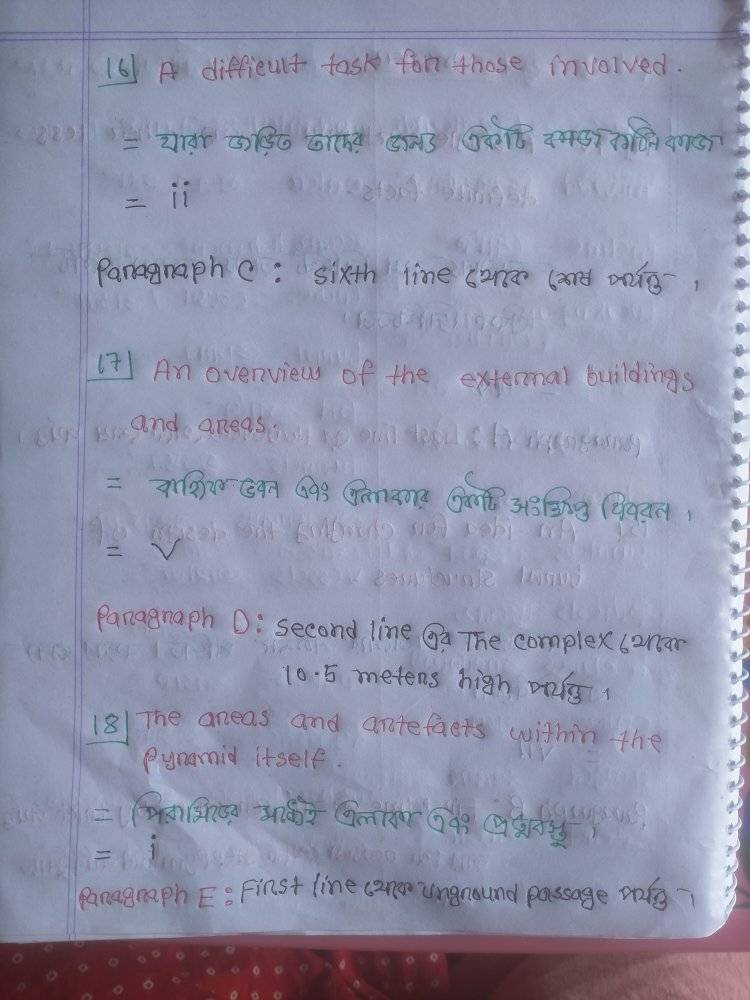 16] A difficult task for those involved.
= যারা জড়িত তাদের জন্য একটি কঠিন কাজ
= ii
Paragraph C: sixth line থেকে শেষ পর্যন্ত।
17] An overview of the external buildings
and areas.
= বাহ্যিক ভবন এবং এলাকার একটি সংক্ষিপ্ত বিবরন।
= v
Paragraph D: second line এর The complex থেকে
10.5 meters high পর্যন্ত।
18] The areas and artefacts within the
pyramid itself.
= পিরামিডের মধ্যেই এলাকা এবং প্রত্নবস্তু।
= i
Paragraph E: First line থেকে unground passage পর্যন্ত।